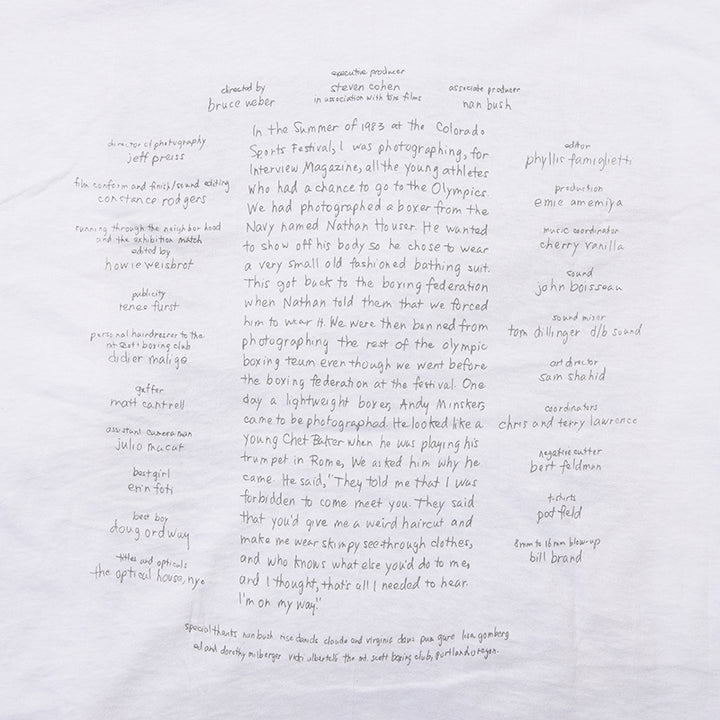 executive producer
steven cohen
in association with tore films
directed by
bruce weber
associate producer
nan bush
director of photography
jeff preiss
film conform and finish/sound editing
constance rodgers
running through the neighborhood
and the exhibition match
edited by
howie weisbrot
publicity
renee furst
personal hairdresser to the
mt. scott boxing club
didier malige
gaffer
matt cantrell
assistant cameraman
julio macat
best girl
erin foti
best boy
doug ordway
titles and opticals
the optical house, nyc
In the Summer of 1983 at the Colorado
Sports Festival, I was photographing, for
Interview Magazine, all the young athletes
who had a chance to go to the Olympics.
We had photographed a boxer from the
Navy named Nathan Houser. He wanted
to show off his body so he chose to wear
a very small old fashioned bathing suit.
This got back to the boxing federation
when Nathan told them that we forced
him to wear it. We were then banned from
photographing the rest of the olympic
boxing team even though we went before
the boxing federation at the festival. One
day a lightweight boxer, Andy Minsker,
came to be photographed. He looked like a
young Chet Baker when he was playing his
trumpet in Rome, We asked him why he
came. He said, "They told me that I was
forbidden to come meet you. They said
that you'd give me a weird haircut and
make me wear skimpy see-through clothes,
and who knows what else you'd do to me,
and I thought, that's all I needed to hear.
I'm on my way."
editor
phyllis famiglietti
production
emie amemiya
music coordinator
cherry vanilla
sound
john boisseau
sound mixer
tom dillinger d/b sound
art director
sam shahid
coordinators
chris and terry lawrence
negative cutter
bert feldman
t-shirts
pod field
8mm to 16mm blow-up
bill brand
special thanks nan bush rise daniels claude and virginia davis pam gare lisa gomberg
ed and dorothy milberger vicki the mt. scott boxing club, portland, oregon.